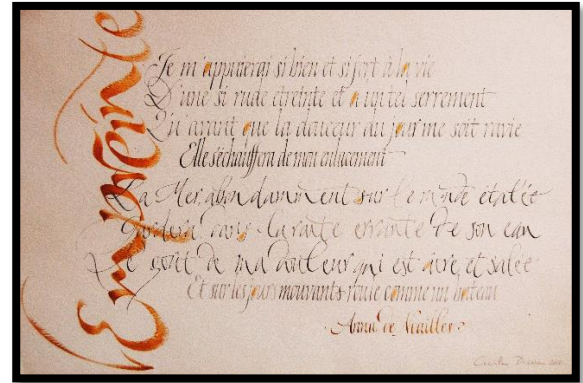 Empreinte
Je m'appuierai si bien et si fort à la vie
D'une si rude étreinte et d'un tel serrement
Qu'avant que la douceur du jour me soit ravie
Elle s'échauffera de mon enlacement
La Mer abondamment sur le monde étalée
Gardera dans la route errante de son eau
Le goût de ma douleur qui est âcre et salée
Et sur les jours mouvants roule comme un bateau
Anna de Noailles